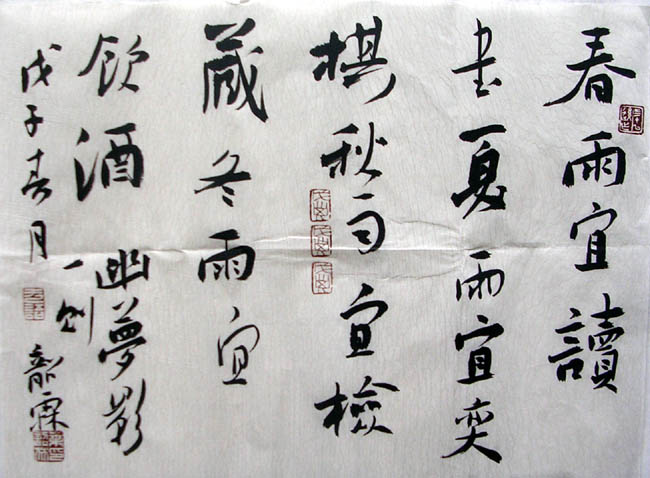 春雨宜讀
書夏雨宜奕
棋秋雨宜檢
藏冬雨宜
飲酒 幽夢影
一則
戊子春月
霖